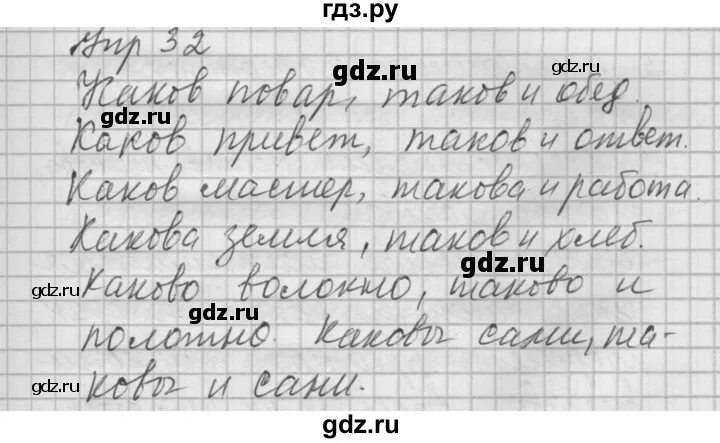 гдз.ру
Упр 32
gdz.ru
Каков повар, таков и обед.
gdz.ru
Каков привет, таков и ответ.
Каков мастер, такова и работа.
Какова земля, таков и хлеб.
gdz.ru
gdz.ru
Каково волокно, таково и
gdz.ru
полотно. Каковы сами, та-
gdz.ru
ковы и сани.
gdz.ru